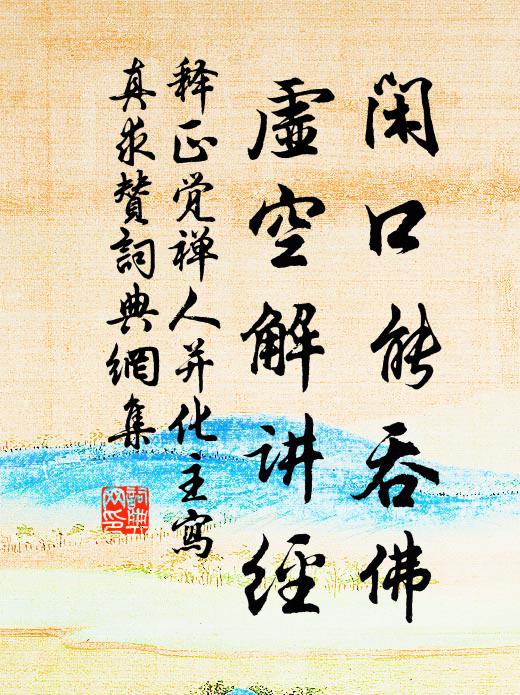 闲口能吞佛
虚空解讲經
释正觉禅人并化主寫
真求赞詞典網集
詞典網印